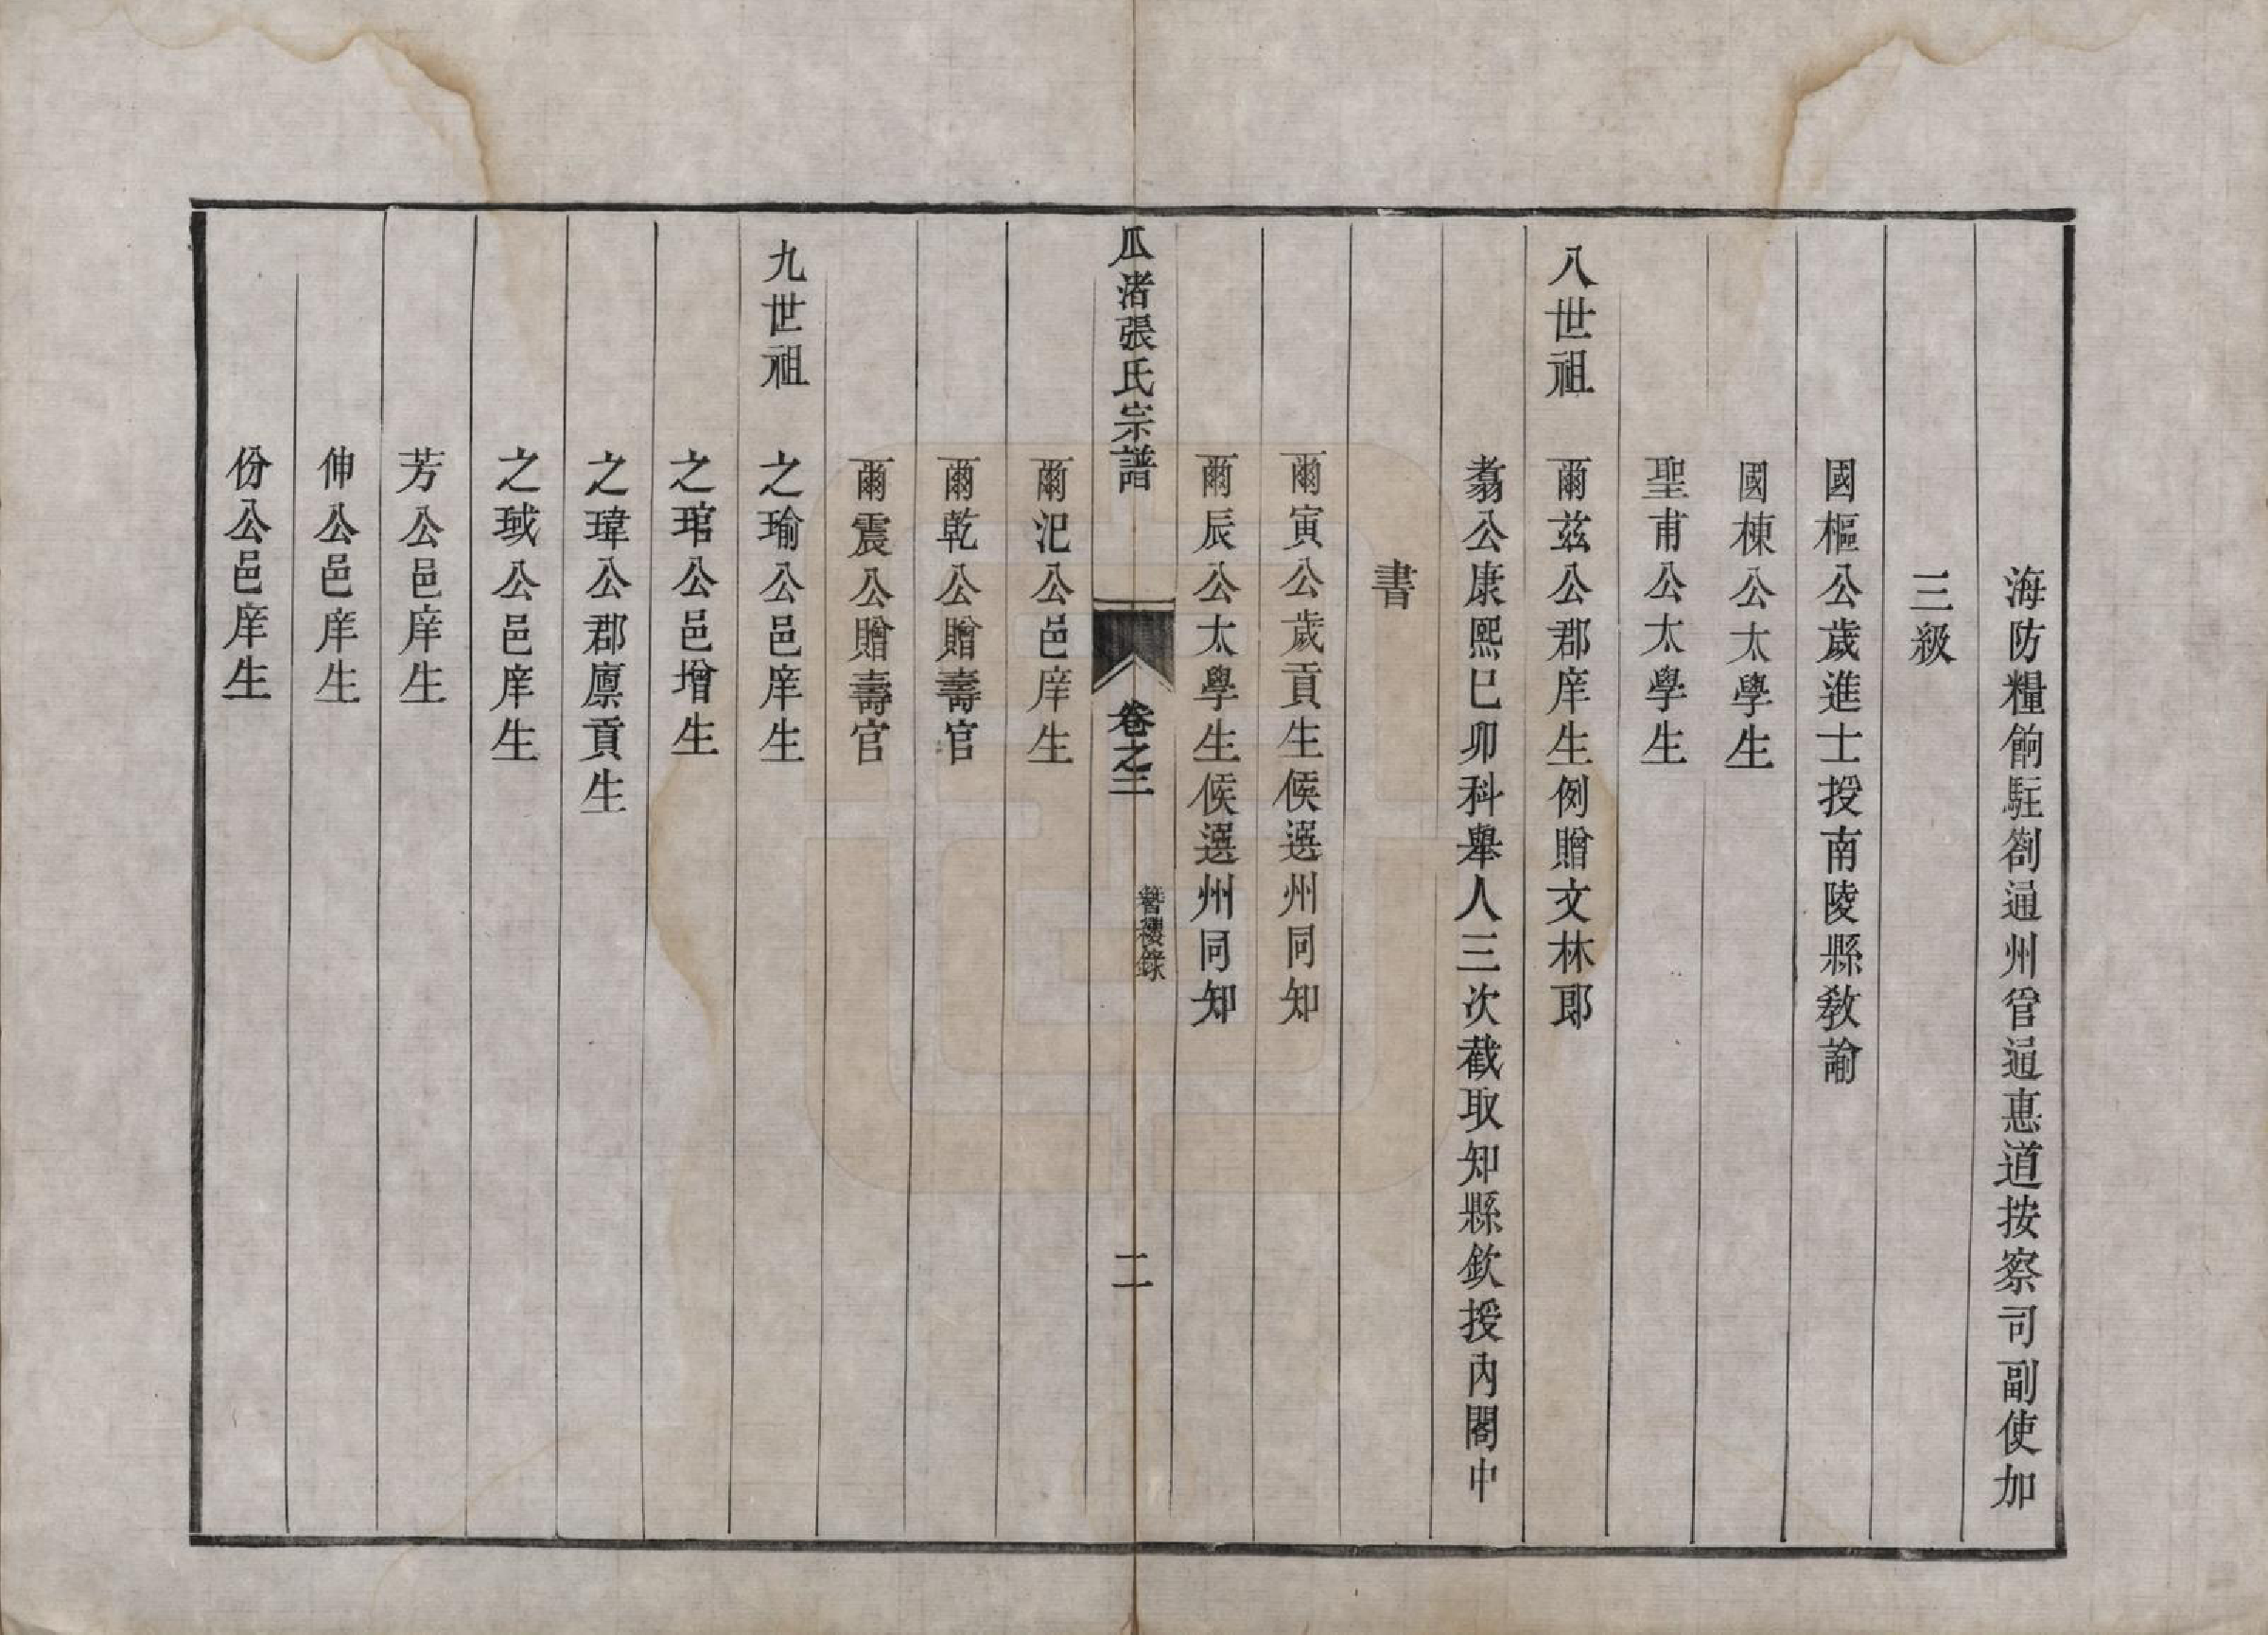 海防糧餉駐劄通州管通惠道按察司副使加
三級
國樞公歲進士授南陵縣教諭
國棟公太學生
聖甫公太學生
八世祖　爾茲公郡庠生例贈文林郎
翥公康熙己卯科舉人三次截取知縣欽授內閣中
書
爾寅公歲貢生候選州同知
爾辰公太學生候選州同知
瓜渚張氏宗譜　卷之三　簪纓錄　二
爾汜公邑庠生
爾乾公贈壽官
爾震公贈壽官
九世祖　之瑜公邑庠生
之琯公邑增生
之瑋公郡廪貢生
之琙公邑庠生
芳公邑庠生
伸公邑庠生
份公邑庠生